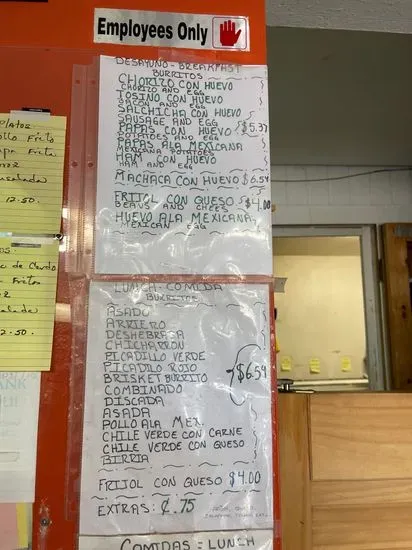 Employees Only
DESAYUNO - BREAKFAST
BURRITOS
CHORIZO CON HUEVO
CHORIZO AND EGG
TOSINO CON HUEVO
BACON AND EGG
SALCHICHA CON HUEVO
SAUSAGE AND EGG
PAPAS CON HUEVO $5.37
POTATOES AND EGG
PAPAS ALA MEXICANA
MEXICANA POTATOES
HAM CON HUEVO
HAM AND EGG
MACHACA CON HUEVO $6.54
FRIJOL CON QUESO $4.00
BEANS AND CHEES
HUEVO ALA MEXICANA
MEXICAN EGG
LUNCH - COMIDA
BURRITOS
ASADO
ARRIERO
DESHEBRADA
CHICHARRON
PICADILLO VERDE
PICADILLO ROJO
BRISKET BURRITO $6.54
COMBINADO
DISCADA
ASADA
POLLO ALA MEX.
CHILE VERDE CON CARNE
CHILE VERDE CON QUESO
BIRRIA
FRIJOL CON QUESO $4.00
EXTRAS: ¢.75
COMIDAS = LUNCH
Platos
Frito
Frita
12.50.
de Cerdo
Fritos